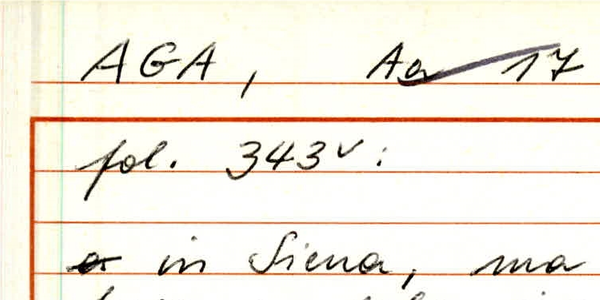 AGA, Aa 17
fol. 343v:
a in Siena, ma